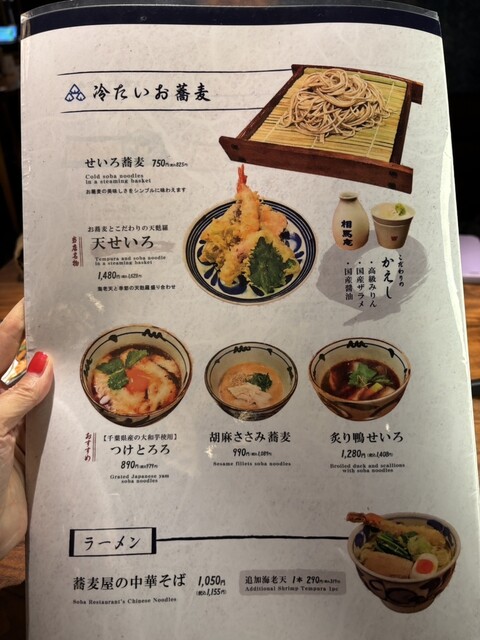 冷たいお蕎麦
せいろ蕎麦 750円(税込825円)
Cold soba noodles
in a steaming basket
お蕎麦の美味しさをシンプルに味わえます
お蕎麦とこだわりの天麩羅
当店名物
天せいろ
Tempura and soba noodle
in a steaming basket
1,480円(税込1,628円)
海老天と季節の天麩羅盛り合わせ
相馬庵
こだわりの
かえし
・高級みりん
・国産ザラメ
・国産醤油
おすすめ
【千葉県産の大和芋使用】
つけとろろ
890円(税込979円)
Grated Japanese yam
soba noodles
胡麻ささみ蕎麦
990円(税込1,089円)
Sesame fillets soba noodles
炙り鴨せいろ
1,280円(税込1,408円)
Broiled duck and scallions
with soba noodles
ラーメン
蕎麦屋の中華そば 1,050円
(税込1,155円)
Soba Restaurant's Chinese Noodles
追加海老天 1本 290円(税込319円)
Additional Shrimp Tempura 1pc